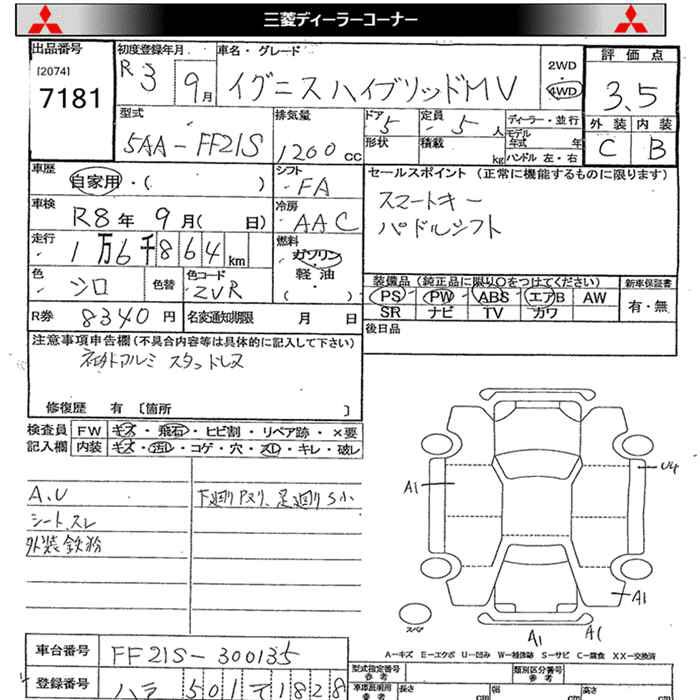 三菱ディーラーコーナー
出品番号 [2074] 7181
初度登録年月 R3 9月
車名・グレード イグニス ハイブリッドMV
2WD・4WD
評価点 3.5
外装 C 内装 B
型式 5AA-FF21S
排気量 1200cc
ドア 5 定員 5人
形状 積載 kg
ディーラー・並行
モデル年式 年式
ハンドル 左・右
車歴 自家用・( )
シフト FA
セールスポイント (正常に機能するものに限ります)
スマートキー
パドルシフト
車検 R8年 9月( 日)
冷房 AAC
走行 1万6千864km
燃料 ガソリン 軽油 ( )
色 シロ 色替
色コード ZVR
装備品 (純正品に限り○をつけてください)
PS PW ABS エアB AW
SR ナビ TV カワ
新車保証書 有・無
R券 8340円
名変通知期限 月 日
後日品
注意事項申告欄 (不具合内容等は具体的に記入して下さい)
社外アルミ スタッドレス
修復歴 有 [箇所 ]
検査員記入欄
FW キズ・飛石・ヒビ割・リペア跡・×要
内装 キズ・汚レ・コゲ・穴・スレ・キレ・破レ
A、U
シート、スレ
外装鉄粉
下廻りアスリ、足廻りS小
A1
U4
A1
スペア
A1
A1
A-キズ E-エクボ U-凹み W-補修跡 S-サビ C-腐食 XX-交換済
車台番号 FF21S-300135
登録番号 501 て 1828
型式指定番号 参考
類別区分番号 参考
車庫証明用 参考 長さ cm 幅 cm 高さ cm